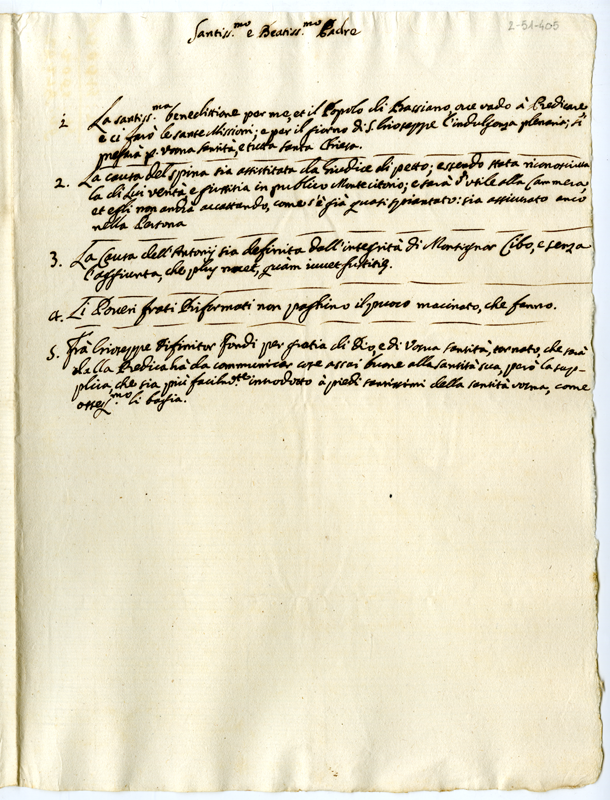 2-51-405
Santiss.mo e Beatiss.mo Padre
1 La santiss.ma benedittione per me, et il Popolo di Bassiano, ove vado à Predicare
e ci farò le sante Missioni; e per il giorno di S. Gioseppe l'indulgenza plenaria;
Vostra santità, e tutta santa Chiesa.
2. La causa del Spina sia assistita da Giudice di petto; essendo stata riconosciuta
la di lui verità e giustitia in publico Montecitorio; e sarà d'utile alla Cammera,
et egli non andrà accattando, come s'è già quasi spiantato: sia assicurato anco
nella Persona
3. La Causa dell'Antonij sia definita dall'integrità di Monsignor Cibo, e senza
l'aggiunta, che plus nocet, quàm iuvet
4. Li Poveri frati Riformati non paghino il puoco macinato, che fanno.
5. Frà Gioseppe Difinitor Fondi per gratia di Dio, e di Vostra santità, tornato, che sarà
della Predica hà da communicar cose assai buone alla santità sua, però la sup-
plica, che sia più facilm.te introdotto à piedi santissimi della santità vostra, come
osseq.mo li bascia.